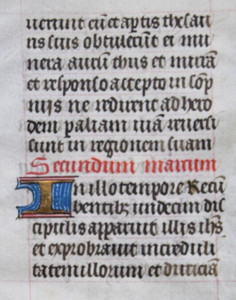 uerunt eum et aptis thesau
ris suis obtulerunt ei mu
nera aurum thus et mirrā
et responso accepto in sōp
nis ne redirent ad hero
dem p aliam uiā reuersi
sunt in regionem suam
Secundum marcum
In illo tempore Recū
bentibꝫ undecim dis
cipulis apparuit illis ihs
et exprobrauit increduli
tatem illorum et duriciā